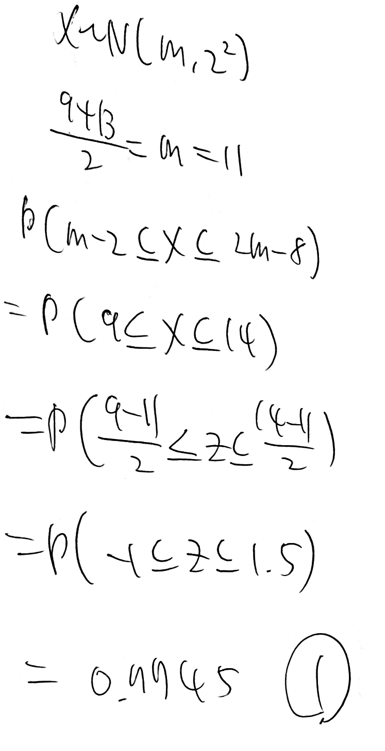 X~N(m, 2²)
9+13/2 = m = 11
P(m-2 ≤ X ≤ 2m-8)
= P(9 ≤ X ≤ 14)
= P(9-11/2 ≤ Z ≤ 14-11/2)
= P(-1 ≤ Z ≤ 1.5)
= 0.7745 ①